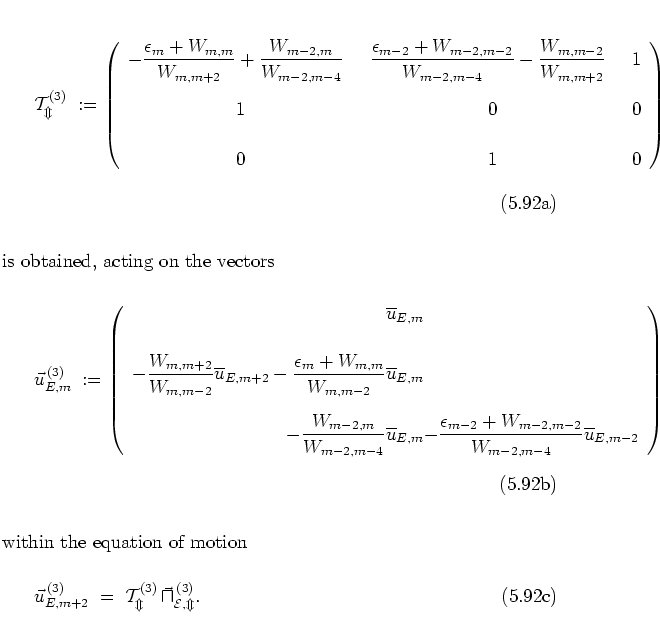 $$\mathcal{T}_{\Updownarrow}^{(3)} := \begin{pmatrix} -\dfrac{\epsilon_m + W_{m,m}}{W_{m,m+2}} + \dfrac{W_{m-2,m}}{W_{m-2,m-4}} & \dfrac{\epsilon_{m-2} + W_{m-2,m-2}}{W_{m-2,m-4}} - \dfrac{W_{m,m-2}}{W_{m,m+2}} & 1 \\ 1 & 0 & 0 \\ 0 & 1 & 0 \end{pmatrix}$$
(5.92a)
is obtained, acting on the vectors
$$\vec{u}_{E,m}^{\,(3)} := \begin{pmatrix} \overline{u}_{E,m} \\ -\dfrac{W_{m,m+2}}{W_{m,m-2}} \overline{u}_{E,m+2} - \dfrac{\epsilon_m + W_{m,m}}{W_{m,m-2}} \overline{u}_{E,m} \\ -\dfrac{W_{m-2,m}}{W_{m-2,m-4}} \overline{u}_{E,m} - \dfrac{\epsilon_{m-2} + W_{m-2,m-2}}{W_{m-2,m-4}} \overline{u}_{E,m-2} \end{pmatrix}$$
(5.92b)
within the equation of motion
$$\vec{u}_{E,m+2}^{\,(3)} = \mathcal{T}_{\Updownarrow}^{(3)} \, \vec{\sqcap}_{\mathcal{E},\Updownarrow}^{\,(3)}.$$ (5.92c)